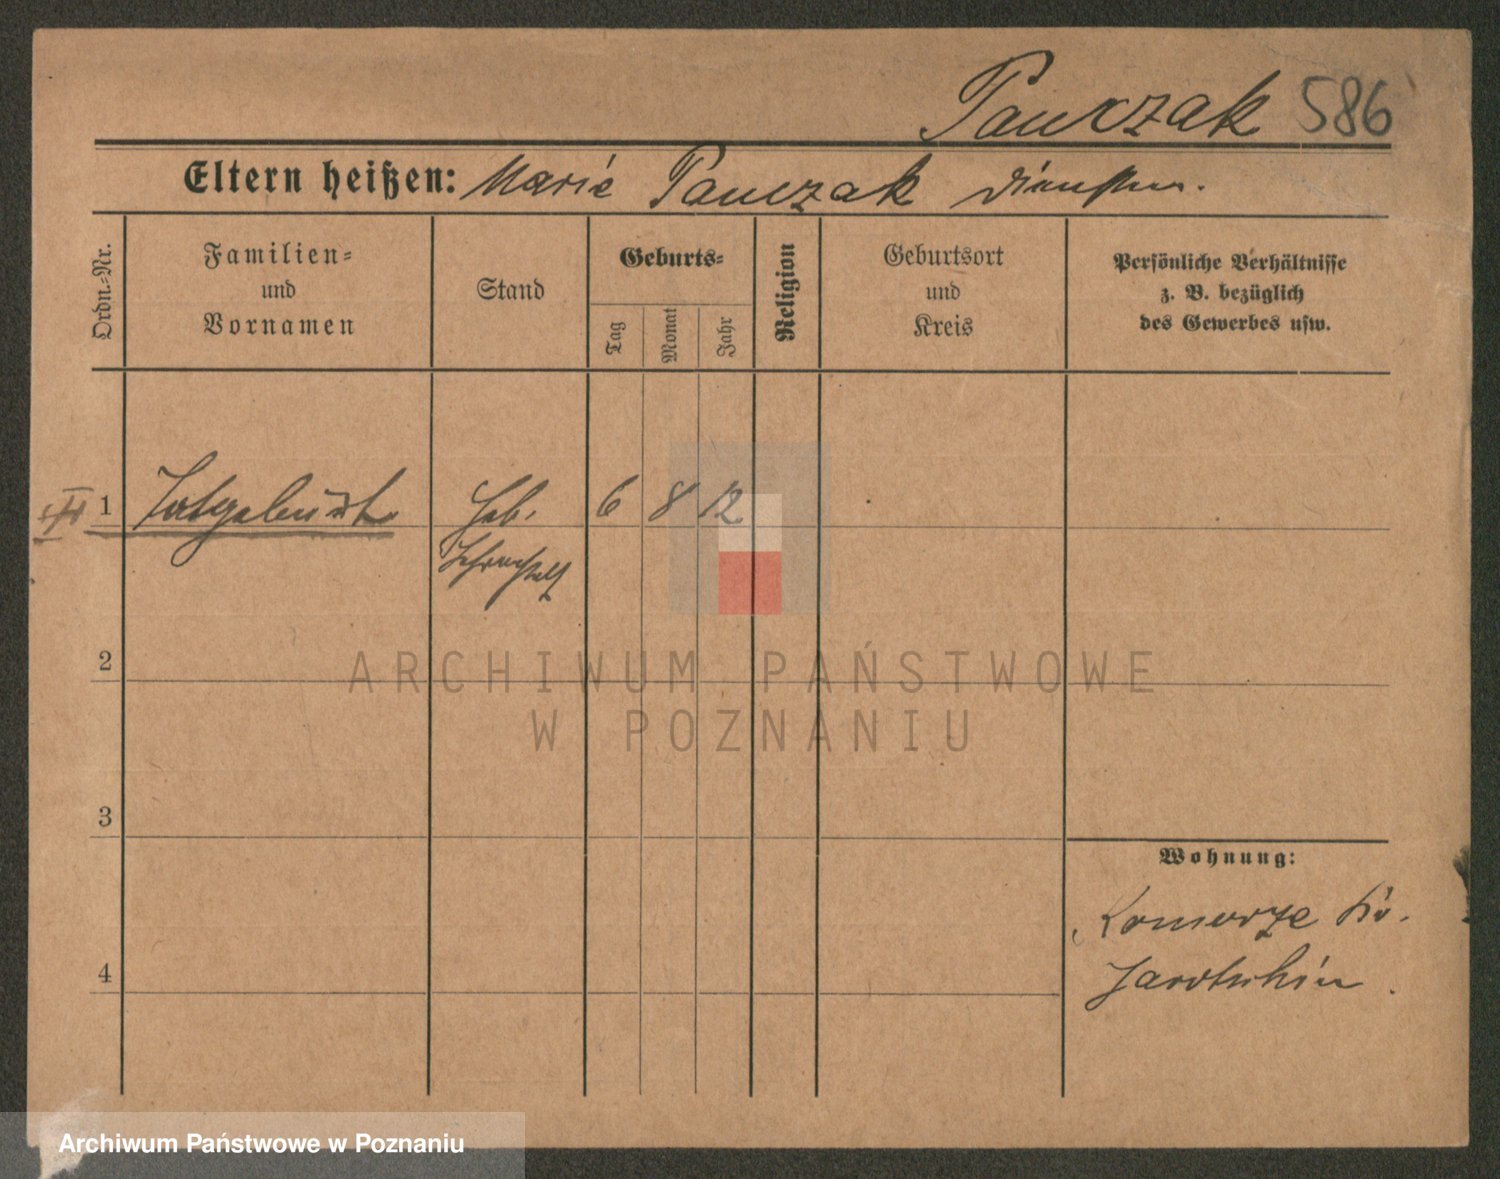 Pawczak 586
Eltern heißen: Marie Pawczak
Ordn.-Nr.
Familien-
und
Vornamen
Stand
Geburts-
Tag
Monat
Jahr
Religion
Geburtsort
und
Kreis
Persönliche Verhältnisse
z. B. bezüglich
des Gewerbes usw.
1 Totgeburt Heb. 6 8 12
2
3
4
Wohnung:
Komorze Kr.
Jarotschin.
ARCHIWUM PAŃSTWOWE
W POZNANIU
Archiwum Państwowe w Poznaniu